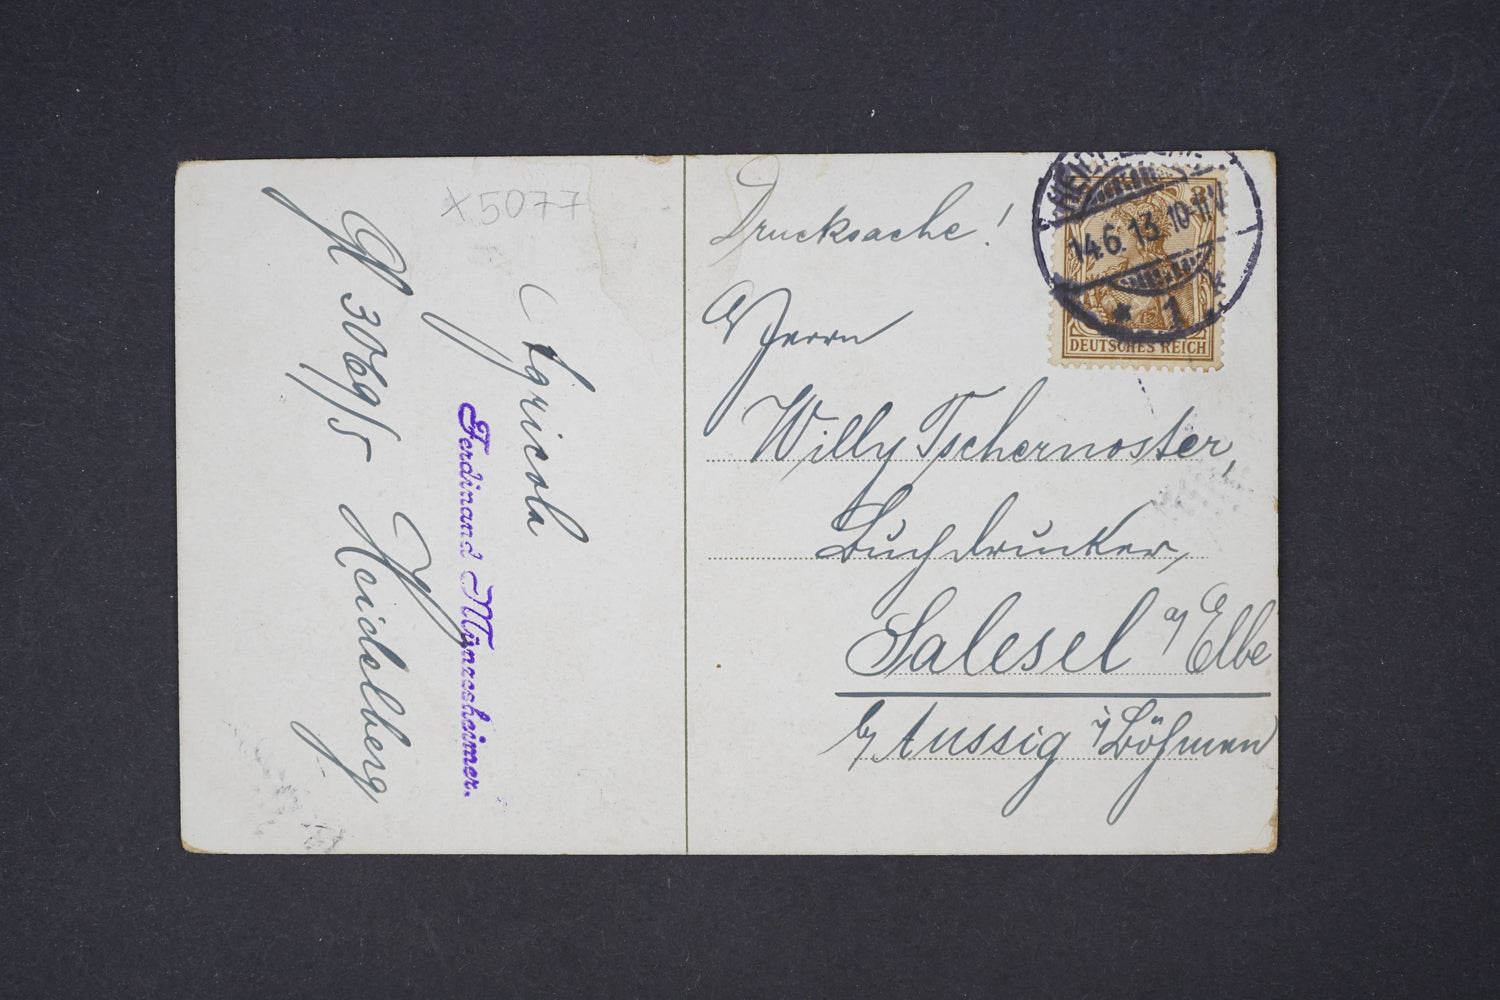 X 5077
Agricola
Ferdinand Münzesheimer.
Heidelberg
3069/5
Drucksache!
Herrn
Willy Tschernoster,
Buchdrucker,
Salesel a/ Elbe
b/ Aussig i/ Böhmen
14.6.13.10-11V
* 1 *
3
DEUTSCHES REICH